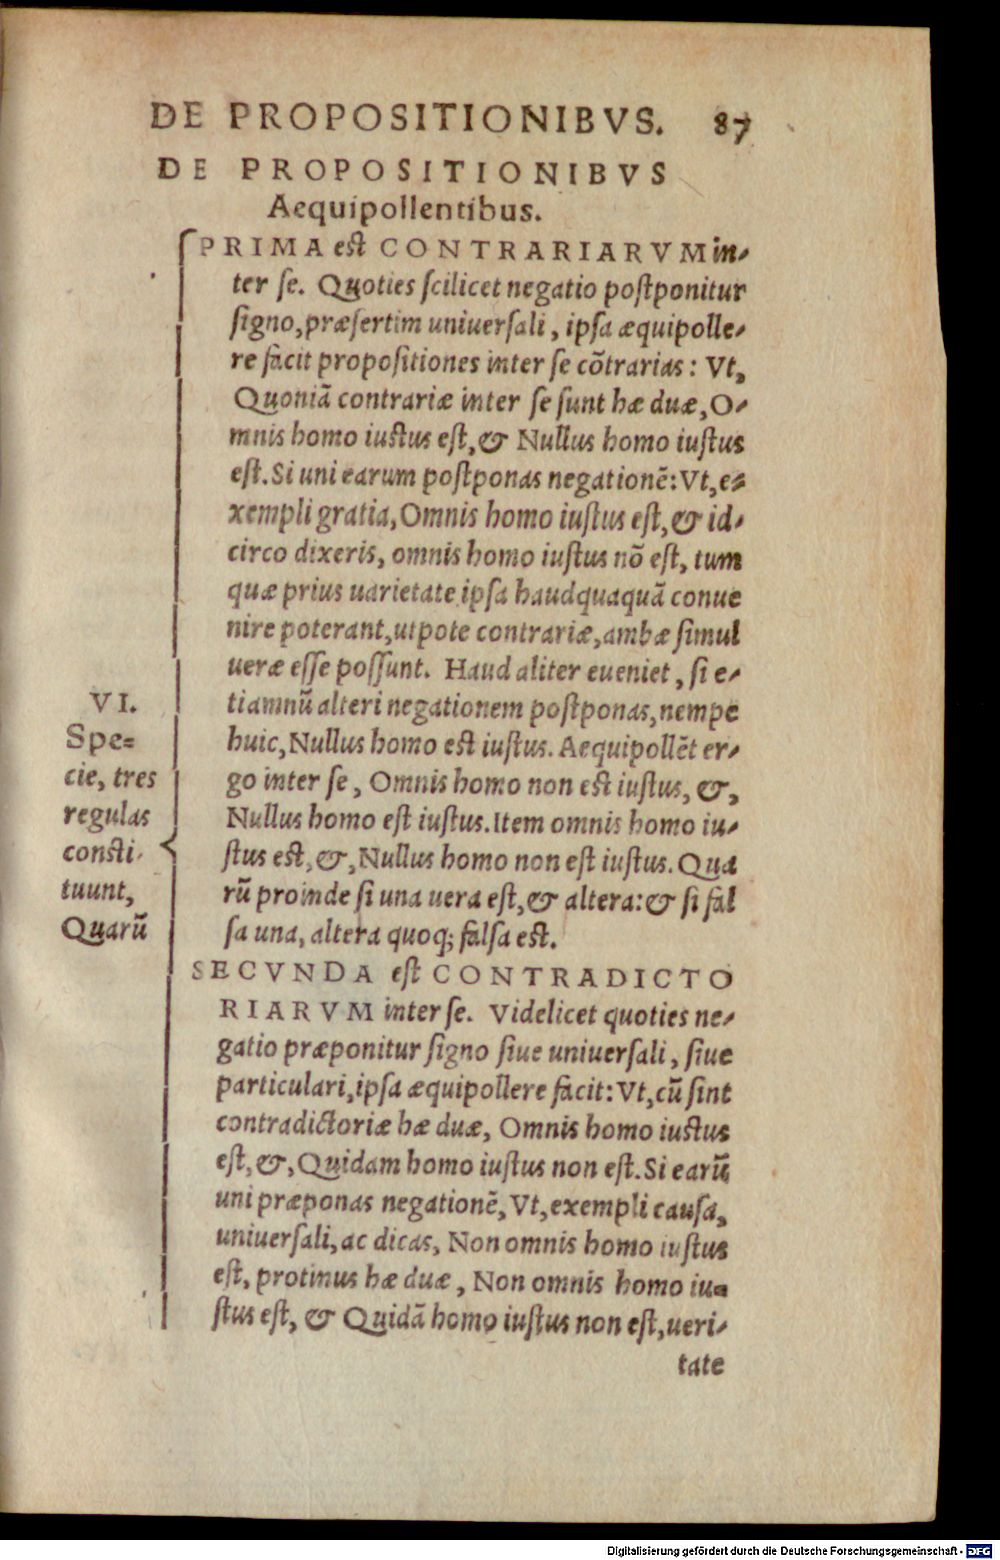 DE PROPOSITIONIBVS. 87
DE PROPOSITIONIBVS
Aequipollentibus.
PRIMA est CONTRARIARVM in-
ter se. Quoties scilicet negatio postponitur
signo, præsertim uniuersali, ipsa æquipolle-
re facit propositiones inter se cõtrarias: Vt,
Quoniã contrariæ inter se sunt hæ duæ, O-
mnis homo iustus est, & Nullus homo iustus
est. Si uni earum postponas negationẽ: Vt, e-
xempli gratia, Omnis homo iustus est, & id-
circo dixeris, omnis homo iustus nõ est, tum
quæ prius uarietate ipsa haudquaquã conue
nire poterant, utpote contrariæ, ambæ simul
ueræ esse possunt. Haud aliter eueniet, si e-
tiamnũ alteri negationem postponas, nempe
huic, Nullus homo est iustus. Aequipollẽt er-
go inter se, Omnis homo non est iustus, &,
Nullus homo est iustus. Item omnis homo iu-
stus est, &, Nullus homo non est iustus. Qua
rũ proinde si una uera est, & altera: & si fal
sa una, altera quoq; falsa est.
VI.
Spe=
cie, tres
regulas
consti-
tuunt,
Quarũ
SECVNDA est CONTRADICTO
RIARVM inter se. Videlicet quoties ne-
gatio præponitur signo siue uniuersali, siue
particulari, ipsa æquipollere facit: Vt, cũ sint
contradictoriæ hæ duæ, Omnis homo iustus
est, &, Quidam homo iustus non est. Si earũ
uni præponas negationẽ, Vt, exempli causa,
uniuersali, ac dicas, Non omnis homo iustus
est, protinus hæ duæ, Non omnis homo iu=
stus est, & Quidã homo iustus non est, ueri-
tate
Digitalisierung gefördert durch die Deutsche Forschungsgemeinschaft - DFG